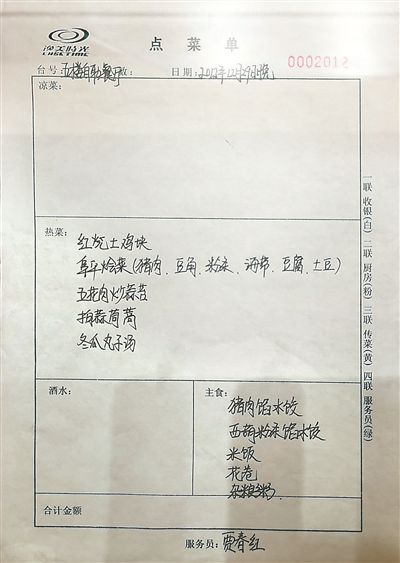 逸美时光
点 菜 单
台号:五楼自助餐厅 数: 日期:2012年12月29日晚
0002012
凉菜:
热菜:
红烧土鸡块
阜平烩菜(猪肉、豆角、粉条、海带、豆腐、土豆)
五花肉炒蒜苔
拍蒜茼蒿
冬瓜丸子汤
酒水:
主食:
猪肉馅水饺
西葫粉条馅水饺
米饭
花卷
杂粮粥
合计金额
服务员:贾春红
一联 收银(白) 二联 厨房(粉) 三联 传菜(黄) 四联 服务员(绿)